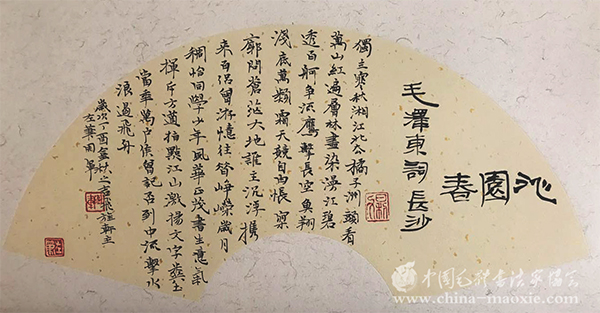 沁園春
毛澤東詞長沙
獨立寒秋湘江北去橘子洲頭看
萬山紅遍層林盡染漫江碧
透百舸爭流鷹擊長空魚翔
淺底萬類霜天競自由悵寥
廓問蒼茫大地誰主沉浮攜
來百侶曾游憶往昔崢嶸歲月
稠恰同學少年風華正茂書生意氣
揮斥方遒指點江山激揚文字糞土
當年萬戶侯曾記否到中流擊水
浪遏飛舟
歲次丁酉孟秋飛旋軒主
左華田筆
中国毛体书法家协会
www.china-maoxie.com